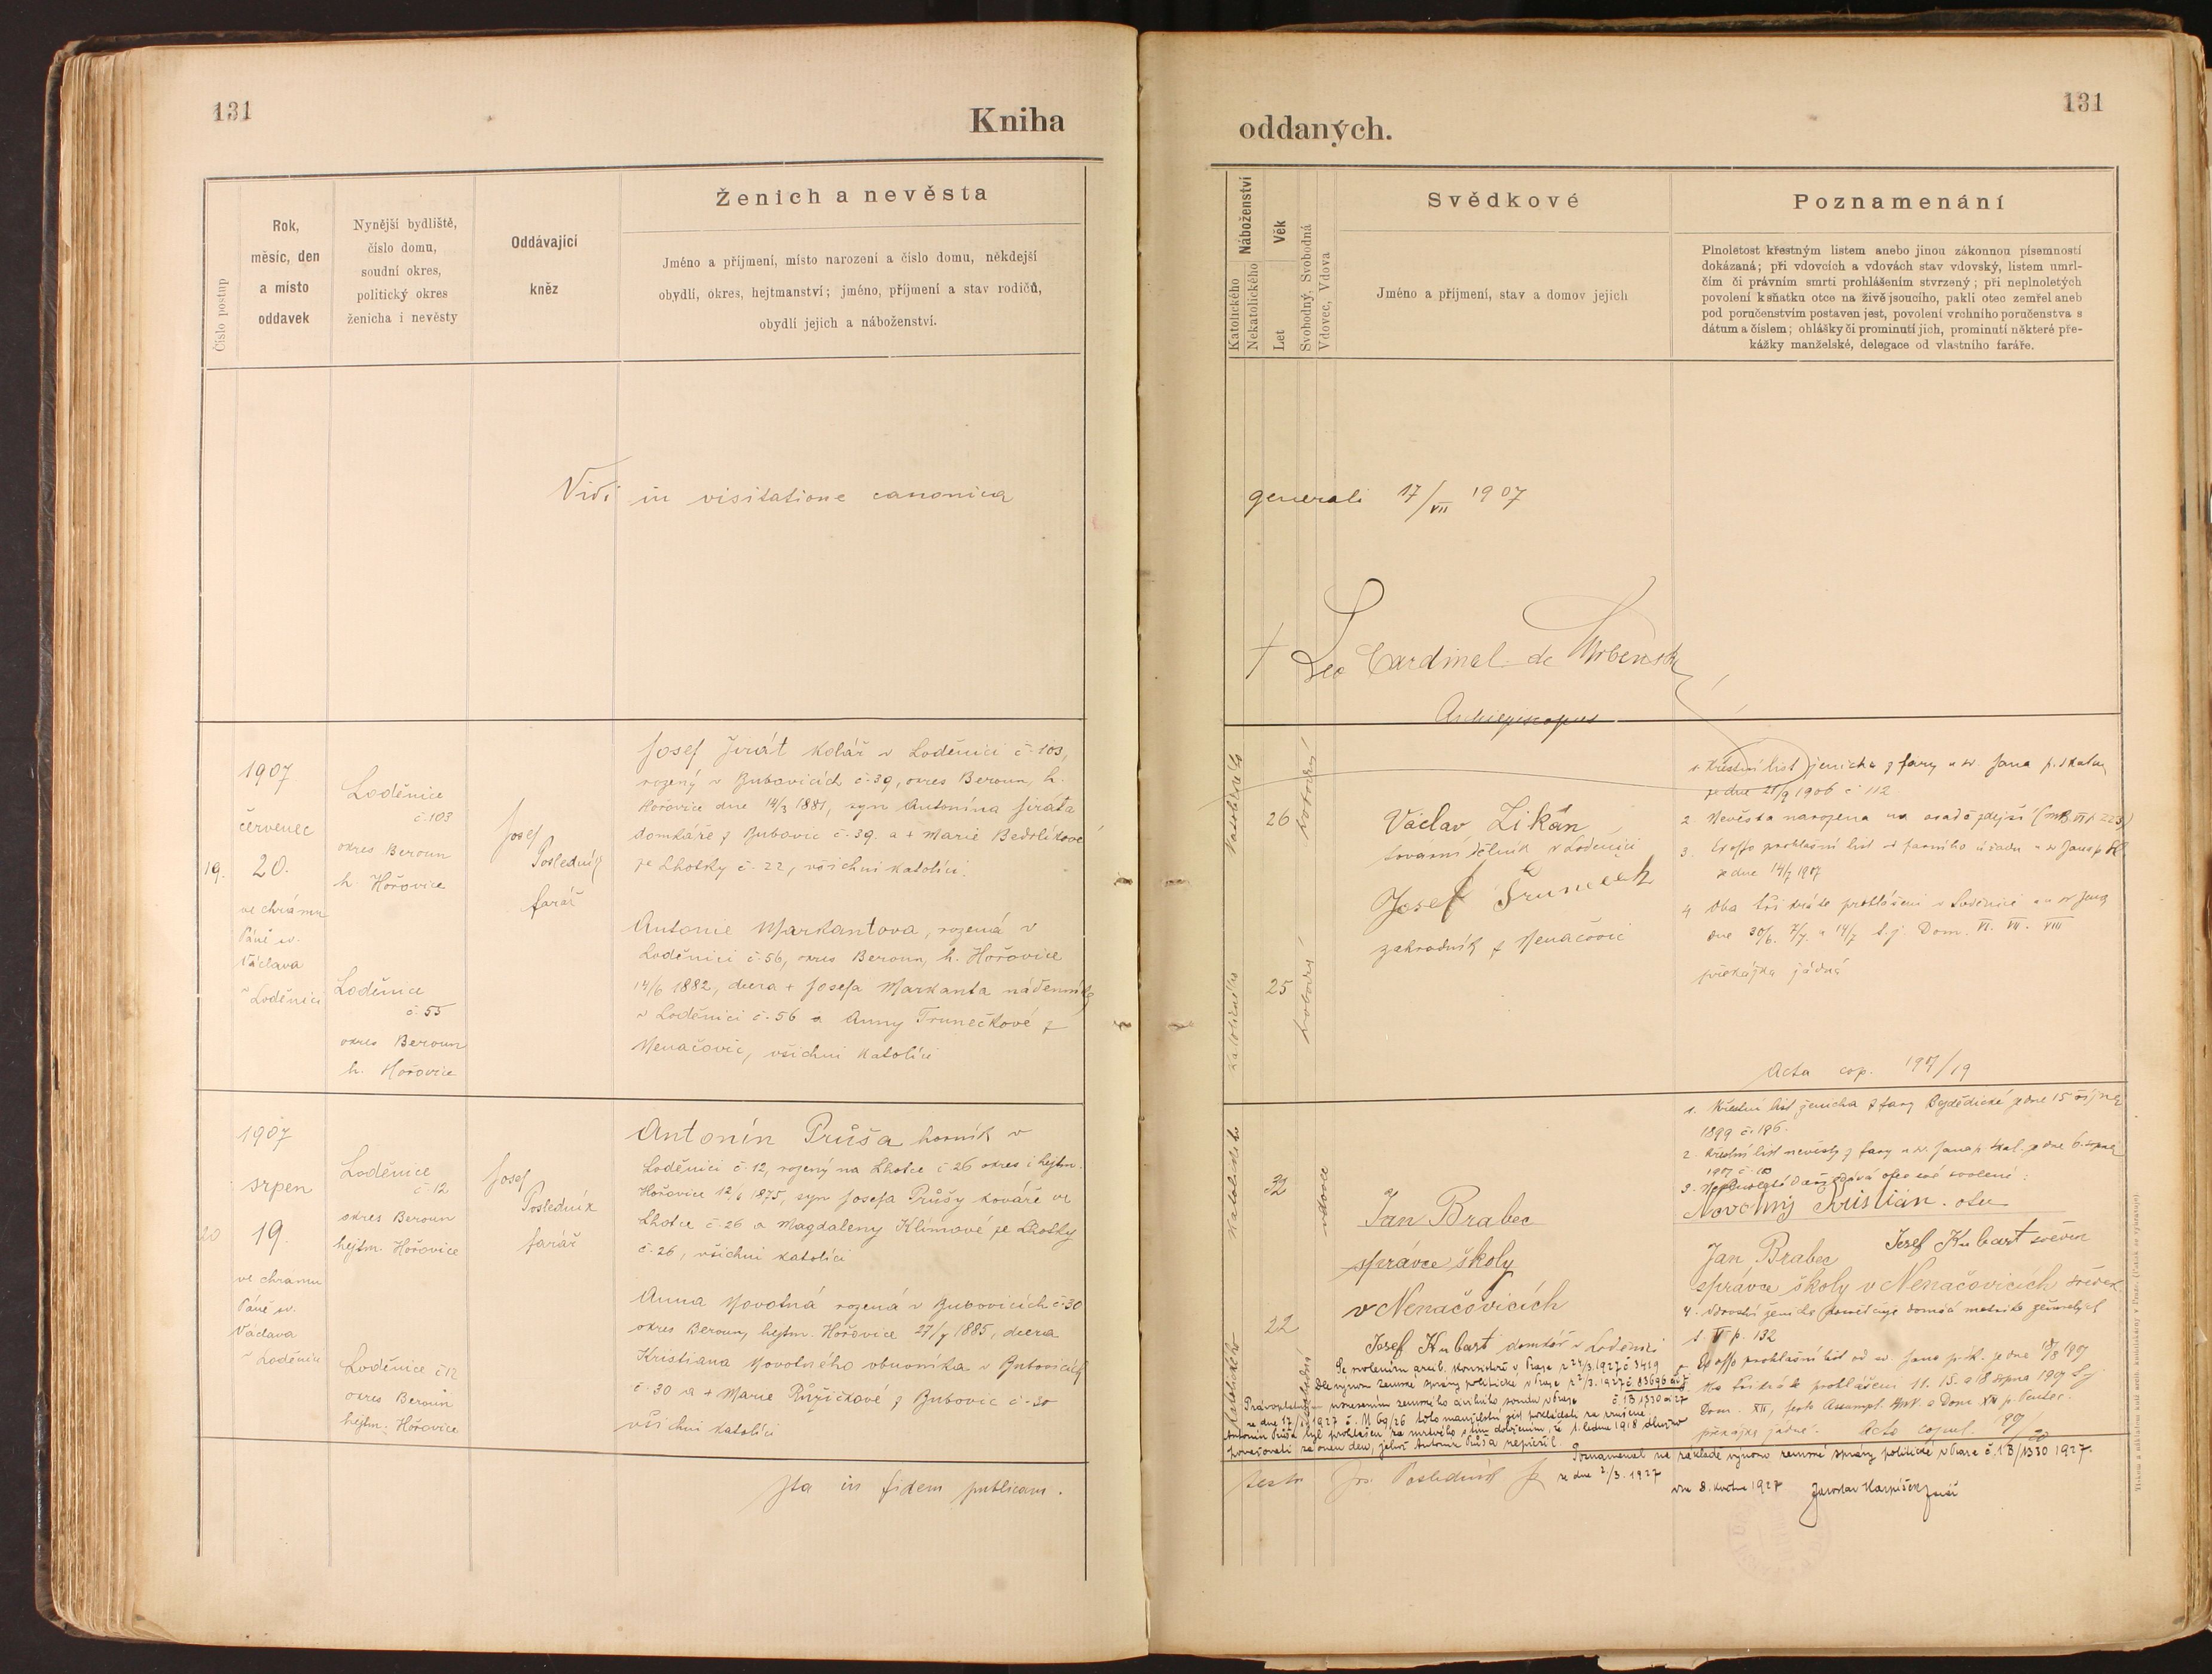 131
Kniha
Číslo postup
Rok,
měsíc, den
a místo
oddavek
Nynější bydliště,
číslo domu,
soudní okres,
politický okres
ženicha i nevěsty
Oddávající
kněz
Ženich a nevěsta
Jméno a příjmení, místo narození a číslo domu, někdejší
obydlí, okres, hejtmanství; jméno, příjmení a stav rodičů,
obydlí jejich a náboženství.
Vidi in visitatione canonica
19.
1907
červenec
20.
ve chrámu
Páně sv.
Václava
v Loděnici
Loděnice
č. 103
okres Beroun
h. Hořovice
Loděnice
č. 55
okres Beroun
h. Hořovice
Josef
Posledník
farář
Josef Jirát kolář v Loděnici č. 103,
rozený v Bubovicích č. 39, okres Beroun, h.
Hořovice dne 14/3 1881, syn Antonína Jiráta
domkáře z Bubovic č. 39. a + Marie Bedrlíkové
ze Lhotky č. 22, všichni katolíci.
Antonie Markantova, rozená v
Loděnici č. 56, okres Beroun, h. Hořovice
14/6 1882, dcera + Josefa Markanta nádenníka
v Loděnici č. 56 a Anny Trunečkové z
Nenačovic, všichni katolíci
20
1907
srpen
19.
ve chrámu
Páně sv.
Václava
v Loděnici
Loděnice
č. 12
okres Beroun
hejtm. Hořovice
Loděnice č 12
okres Beroun
hejtm. Hořovice
Josef
Posledník
farář
Antonín Průša horník v
Loděnici č. 12, rozený na Lhotce č. 26 okres i hejtm.
Hořovice 12/6 1875, syn Josefa Průšy kováře ve
Lhotce č. 26 a Magdaleny Klímové ze Lhotky
č. 26, všichni katolíci
Anna Novotná rozená v Bubovicích č. 30
okres Beroun, hejtm. Hořovice 27/7 1885, dcera
Kristiana Novotného obuvníka v Bubovicích
č. 30 a + Marie Růžičkové z Bubovic č. 30
všichni katolíci
Ita in fidem publicam.
131
oddaných.
Náboženství
Katolického
Nekatolického
Věk
Let
Svobodný, Svobodná
Vdovec, Vdova
Svědkové
Jméno a příjmení, stav a domov jejich
Poznamenání
Plnoletost křestným listem anebo jinou zákonnou písemností
dokázaná; při vdovcích a vdovách stav vdovský, listem umrl-
čím či právním smrti prohlášením stvrzený; při neplnoletých
povolení k sňatku otce na živě jsoucího, pakli otec zemřel aneb
pod poručenstvím postaven jest, povolení vrchního poručenstva s
dátum a číslem; ohlášky či prominutí jich, prominutí některé pře-
kážky manželské, delegace od vlastního faráře.
generali 17/VII 1907
+ Leo Cardinal de Skrbenský
Archiepiscopus
katolické
26
svobodný
katolického
25
Václav Zikán
tovární dělník v Loděnici
Josef Truneček
zahradník z Nenačovic
1. Křestní list ženicha z fary u sv. Jana p. Skalou
ze dne 21/9 1906 č 112
2. Nevěsta narozena na osadě zdejší
ze dne 14/7 1907
4. Oba tři kráte prohlášeni v Loděnici a u sv Jana
dne 30/6. 7/7. a 14/7 t. j. Dom. VI. VII. VIII
překážka žádná
Acta cop. 1907/19
katolického
32
vdovec
katolického
22
Jan Brabec
správce školy
v Nenačovicích
Josef Kubart domkář v Loděnici
1. Křestní list ženicha z fary ze dne 15 října
1899 č. 196.
2. Křestní list nevěsty z fary u sv. Jana p. Skal. ze dne 6. srpna
1907
Novotný Kristian. otec
Josef Kubart svědek
Jan Brabec
správce školy v Nenačovicích svědek
p. 132
prohlašní list od sv. Jana p. Sk. ze dne 18/8 1907
prohlášeni 11. 15. a 18 srpna 1907 t. j.
Dom. XII, festo Assumpt. a Dom XIII p. Pentec.
překážka žádná. Acta copul. 1907/20
Se svolením arcib. konsistoře v Praze z 24/3. 1927 č 3419
Dle výnosu zemské správy politické v Praze z 2/3. 1927 č. 83696
ze dne 17/ 1927 č. M 69/26 toto manželství
Antonín Průša byl prohlášen za mrtvého s tím doložením, že 1. ledna 1918 dlužno
považovati za onen den, jehož Antonín Průša nepřežil.
Poznamenal na základě výnosu zemské správy politické v Praze č. 1B/1330 1927.
ze dne 2/3. 1927
dne 8. května 1927
testor Jos. Posledník
Jaroslav farář